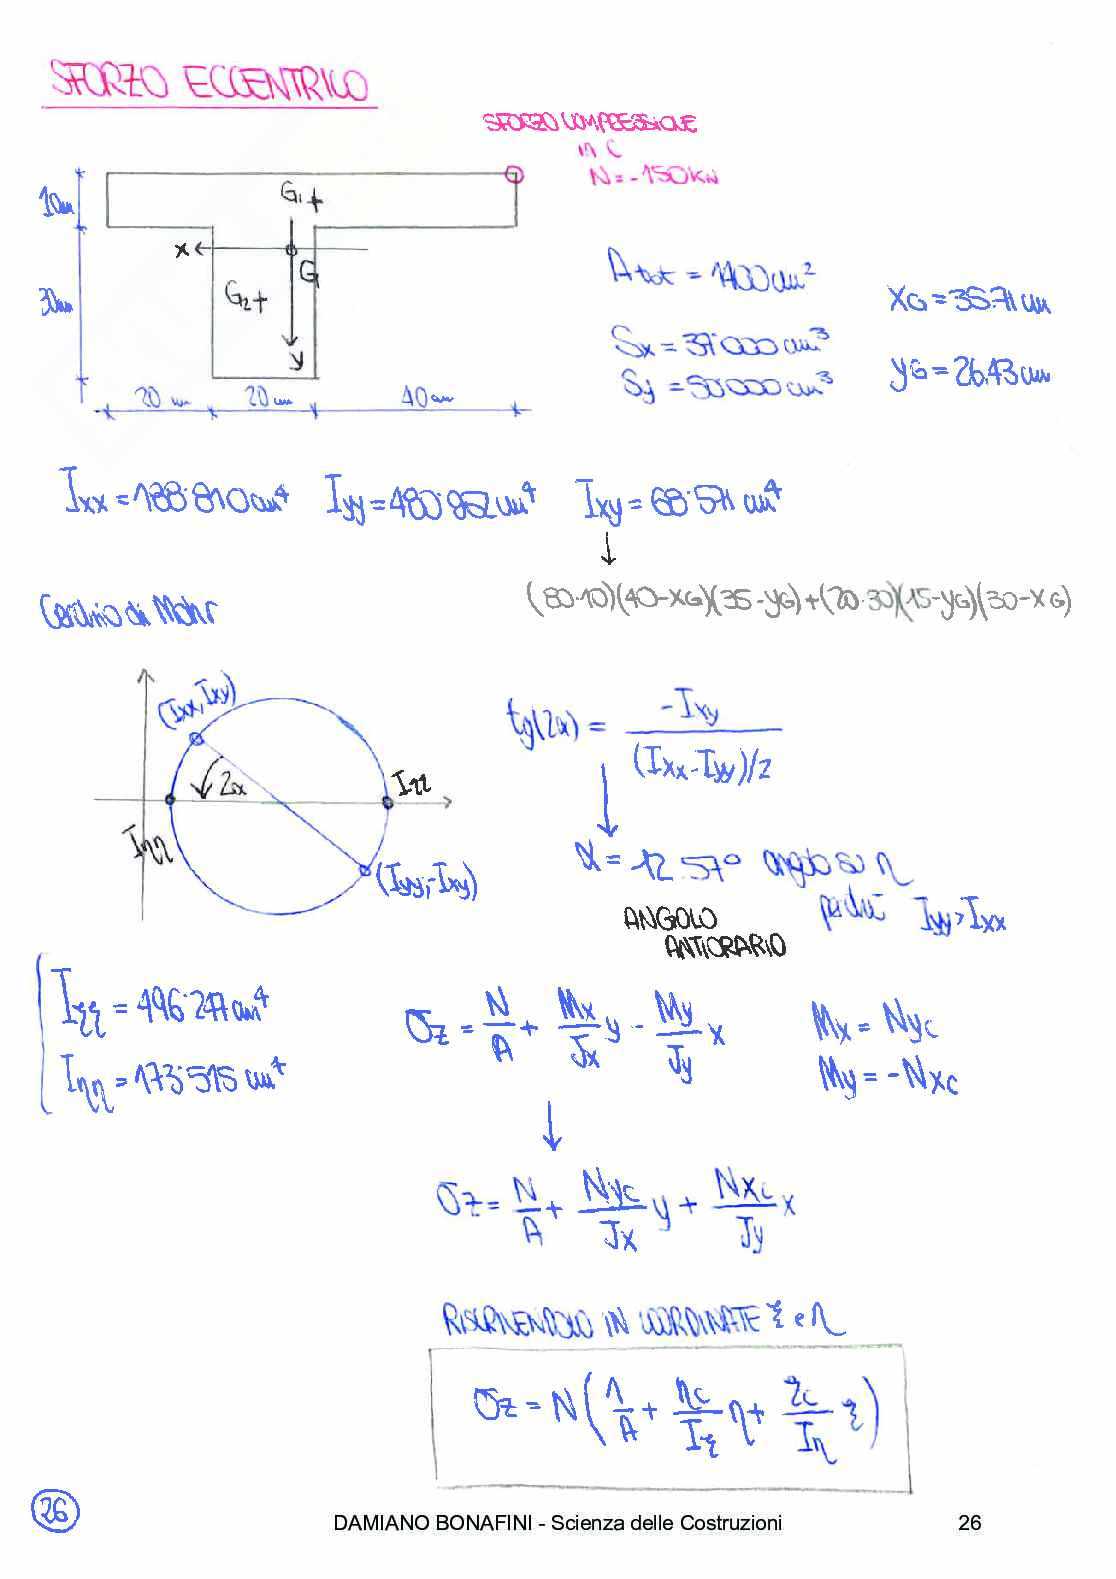 SFORZO ECCENTRICO
SFORZO COMPRESSIONE
in C
N = -150 KN
10cm
30cm
G1
x
G
G2
y
20 cm
20 cm
40 cm
A tot = 1400 cm²
Sx = 37'000 cm³
Sy = 50'000 cm³
XG = 35.71 cm
yG = 26.43 cm
Ixx = 188'810 cm⁴ Iyy = 480'952 cm⁴ Ixy = 68'571 cm⁴
↓
(80·10)(40-XG)(35-yG)+(20·30)(15-yG)(30-XG)
Cerchio di Mohr
(Ixx, Ixy)
2α
Iξξ
Iηη
(Iyy; -Ixy)
tg(2α) = -Ixy / (Ixx-Iyy)/2
α = 12.57° angolo su η
perché Iyy > Ixx
ANGOLO
ANTIORARIO
Iξξ = 496'247 cm⁴
Iηη = 173'515 cm⁴
σz = N/A + Mx/Jx y - My/Jy x
Mx = Nyc
My = -Nxc
σz = N/A + Nyc/Jx y + Nxc/Jy x
RISCRIVENDOLO IN COORDINATE ξ e η
σz = N(1/A + ηc/Iξ η + ξc/Iη ξ)
26
DAMIANO BONAFINI - Scienza delle Costruzioni 26